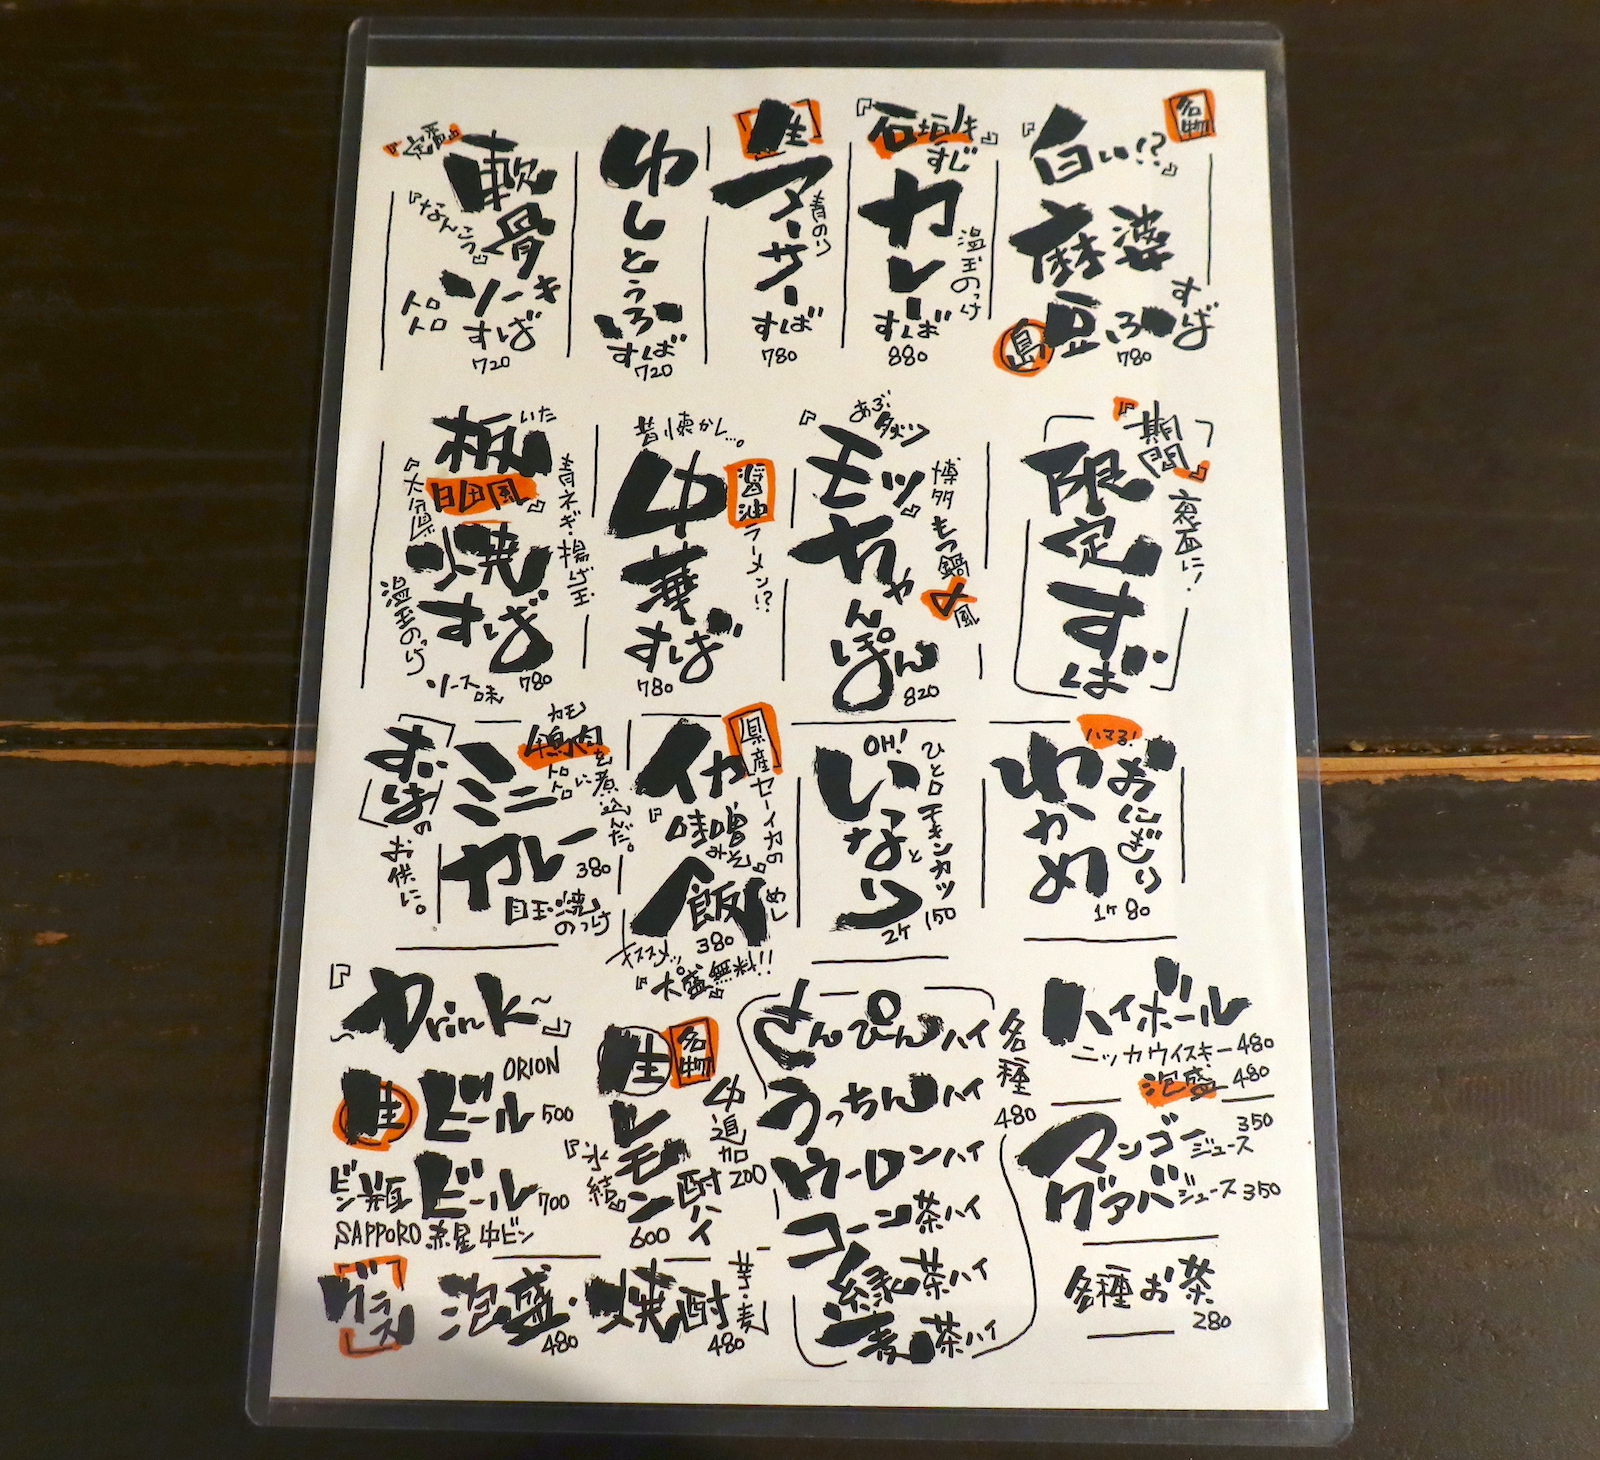 名物
『白い!?』
麻婆
島豆ふ
すば
780
『石垣牛すじ』
カレー
すば
温玉のっけ
880
生
アーサー
青のり
すば
780
ゆしとうふ
すば
720
『定番』
軟骨
『なんこつ』
ソーキ
すば
トロトロ
720
『期間』
限定すば
裏面に!
あぶ
『モツ』
ちゃんぽん
博多もつ鍋〆風
820
昔懐かし…。
中華
すば
醤油ラーメン!?
780
板
いた
日田風
『大分県』
焼
すば
青ネギ・揚げ玉
温玉のっけ
ソース味
780
ハマる!
わかめ
おにぎり
1ヶ 80
OH!
いなり
ひと口チキンカツと
2ケ 150
県産セーイカの
イカ
『味噌』
みそ
飯
めし
380
オススメッ。
『大盛無料!!』
カモ
鴨肉をトロトロに煮込んだ。
ミニ
カレー
380
目玉焼のっけ
すばのお供に。
『~Drink~』
ORION
生ビール 500
ビン瓶ビール 700
SAPPORO 赤星 中ビン
グラス
泡盛・
480
焼酎
芋・麦
480
名物
生
レモン
酎ハイ
『氷結』
600
中追加
200
さんぴんハイ
うっちんハイ
ウーロンハイ
コーン茶ハイ
緑茶ハイ
麦茶ハイ
各種
480
ハイボール
ニッカウイスキー 480
泡盛 480
マンゴージュース 350
グァバジュース 350
各種お茶
280